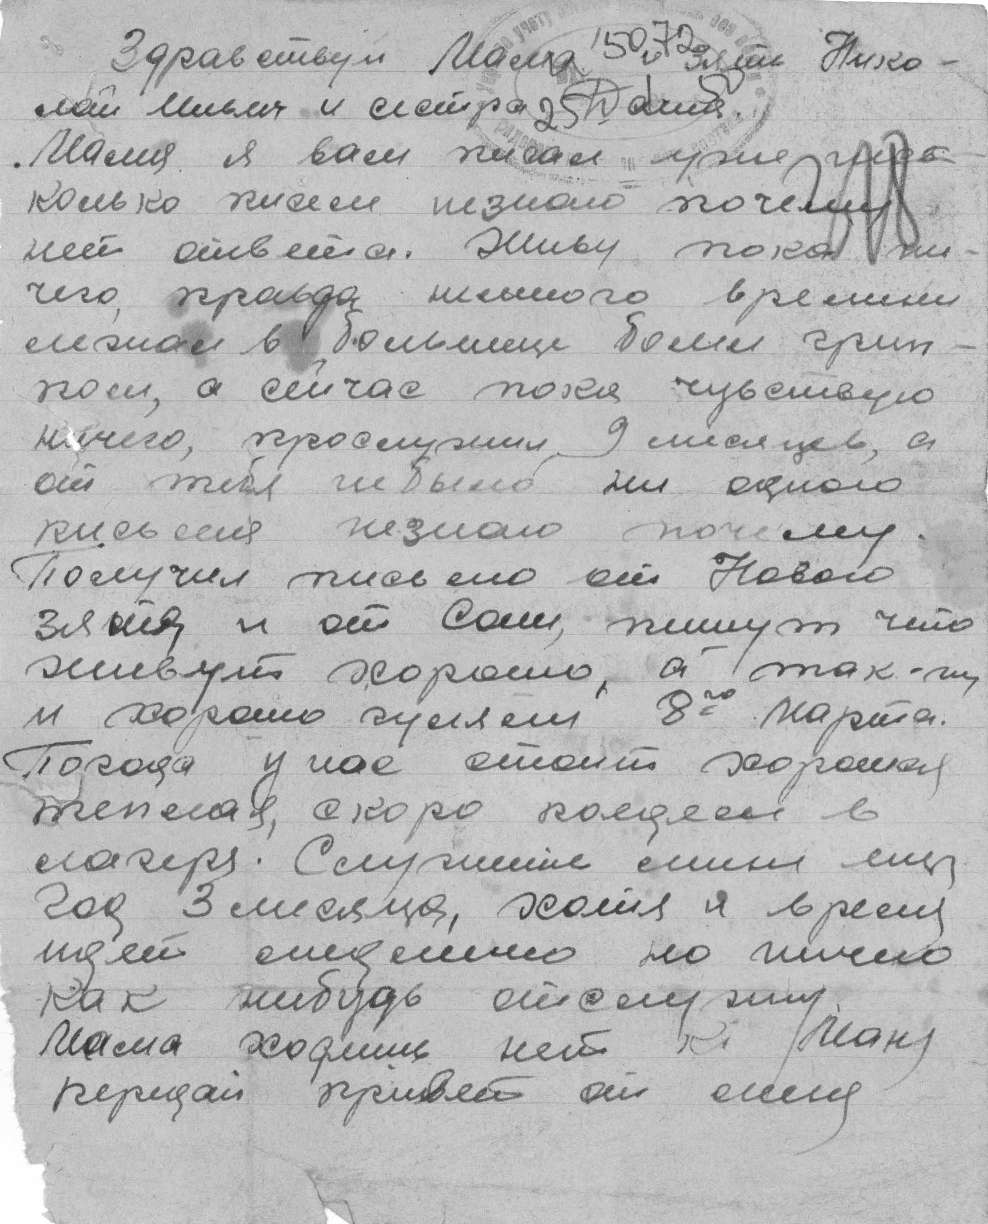 Здравствуй Мама и зять Нико-
лай Ильич и сестра
Мама я вам писал уже нес-
колько писем незнаю почему
нет ответа. Живу пока ни-
чего, правда немного времени
лежал в больнице болел грип-
пом, а сейчас пока чувствую
ничего, прослужил 9 месяцев, а
от тебя небыло ни одного
письма незнаю почему.
Получил письмо от Нового
зятя и от Сони, пишут что
живут хорошо, а так-же
и хорошо гуляли 8го Марта.
Погода у нас стоит хорошая
теплая, скоро поедем в
лагеря. Служить мине ище
год 3 месяца, хотя и время
идет медленно но ничего
как нибудь отслужу.
Мама ходишь нет к Мане
передай привет от меня